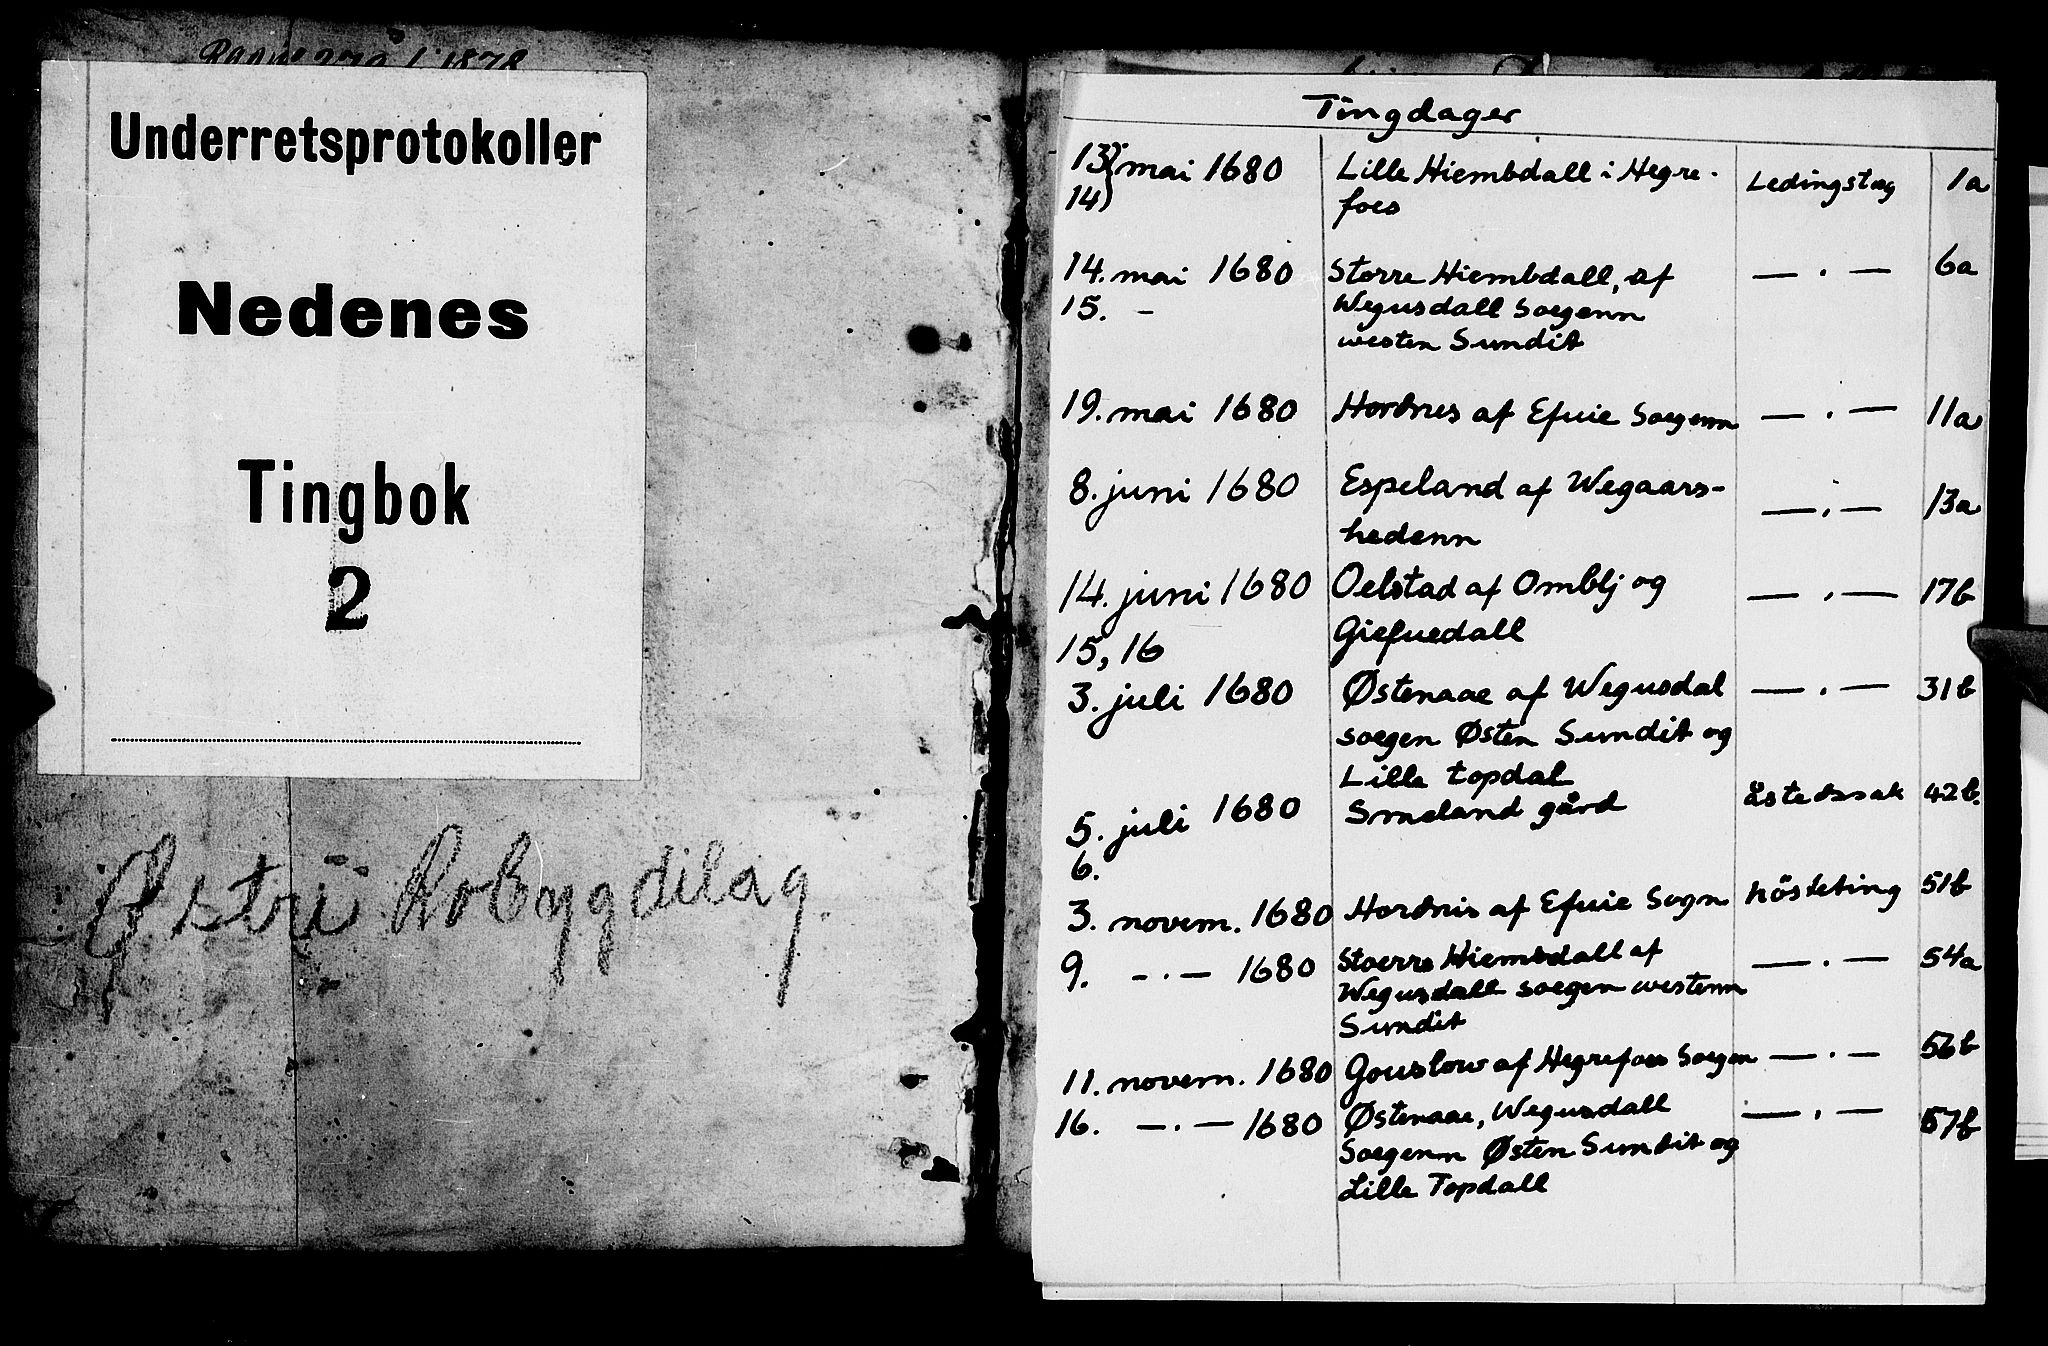 1878
Underretsprotokoller
Nedenes
Tingbok
2
Østri Robygdilag.
Tingdager
13) mai 1680 Lille Hiembdall i Hegre- Ledingstog 1a
14) foes
14. mai 1680 Storre Hiembdall, af — . — 6a
15. - Wegusdall Soegenn
westen Sundit
19. mai 1680 Hordnes af Efuie Soegenn — . — 11a
8. juni 1680 Espeland af Wegaars- — . — 13a
hedenn
14. juni 1680 Oelstad af Omblj og — . — 17b
15, 16 Giefuedall
3. juli 1680 Østenaae af Wegusdal — . — 31b
soegen Østen Sundit og
Lille topdal
5. juli 1680 Smeland gård åstedssak 42b.
6.
3. novem. 1680 Hordnis af Efuie Sogn høsteting 51b
9. — . — 1680 Stoerre Hiembdall af — . — 54a
Wegusdall soegen westenn
Sundit
11. novem. 1680 Gouslow af Hegrefoes Soegen — . — 56b
16. — . — 1680 Østenaae, Wegusdall — . — 57b
Soegenn Østen Sundit og
Lille Topdall